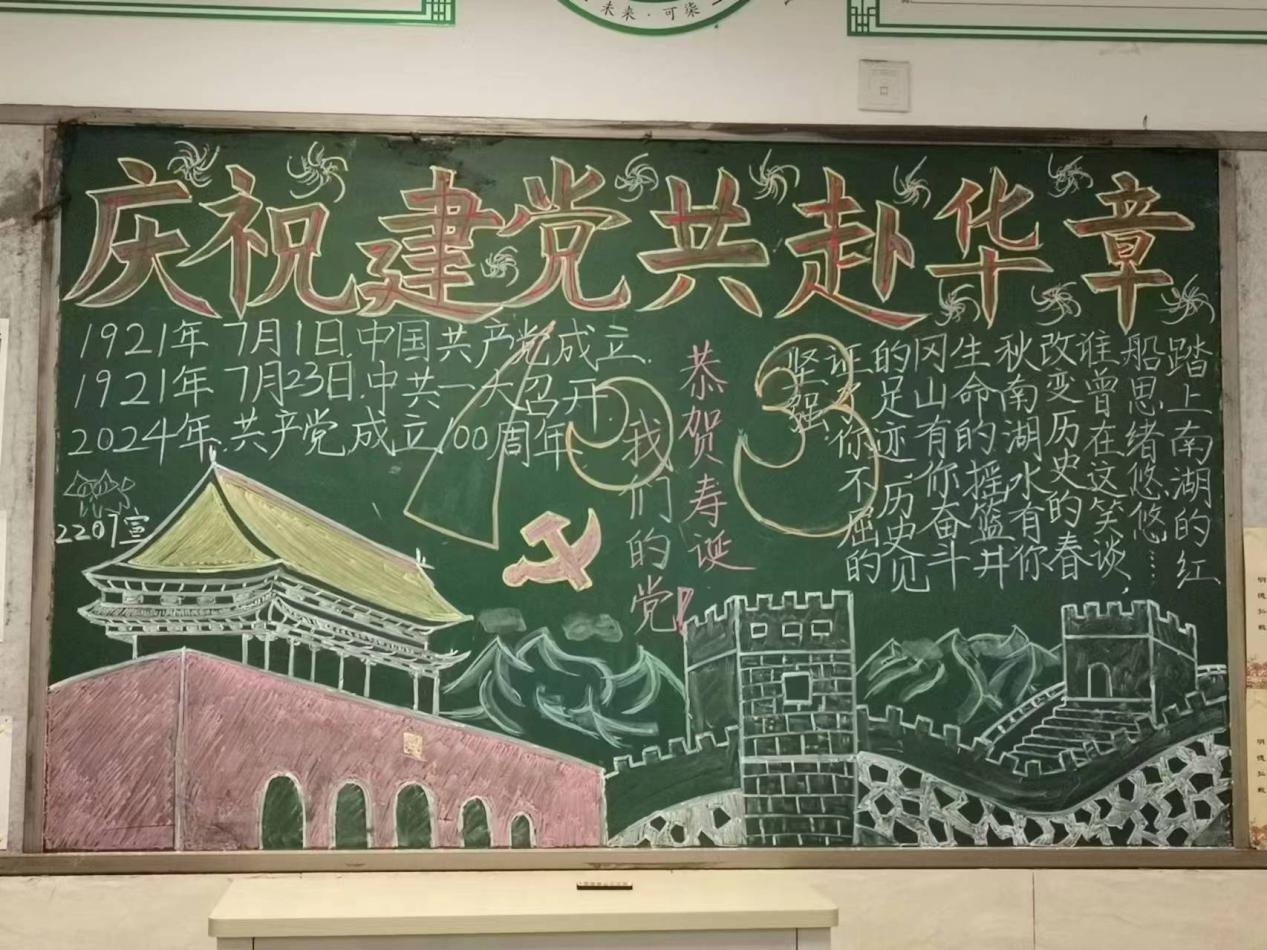 未来·可柒
庆祝建党共赴华章
1921年 7月1日.中国共产党成立.
1921年 7月23日.中共一大召开
2024年.共产党成立100周年.
2207宣
103
恭贺寿诞
我们的党!
踏上南湖的红
船思绪悠悠…
谁曾在这笑谈,
改变历史的春
秋南湖水有你
生命的摇篮井
冈山有你奋斗
的足迹历史见
证你不屈的
坚强